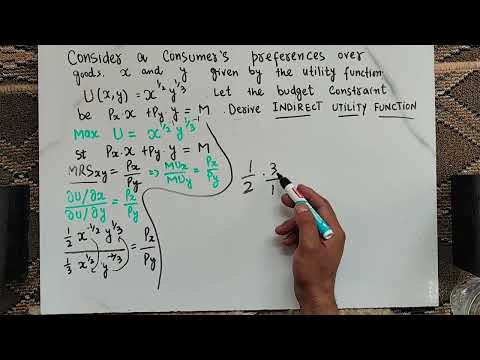 Consider a Consumer's preferences over
goods. x and y given by the utility function
U(x,y) = x^1/2 y^1/3. Let the budget Constraint
be Px.x + Py.y = M. Derive INDIRECT UTILITY FUNCTION
Max U = x^1/2 y^1/3
st Px.x + Py.y = M
MRSxy = Px/Py => MUx/MUy = Px/Py
∂U/∂x / ∂U/∂y = Px/Py
1/2 x^-1/2 y^1/3 / 1/3 x^1/2 y^-2/3 = Px/Py
1/2 . 3/1